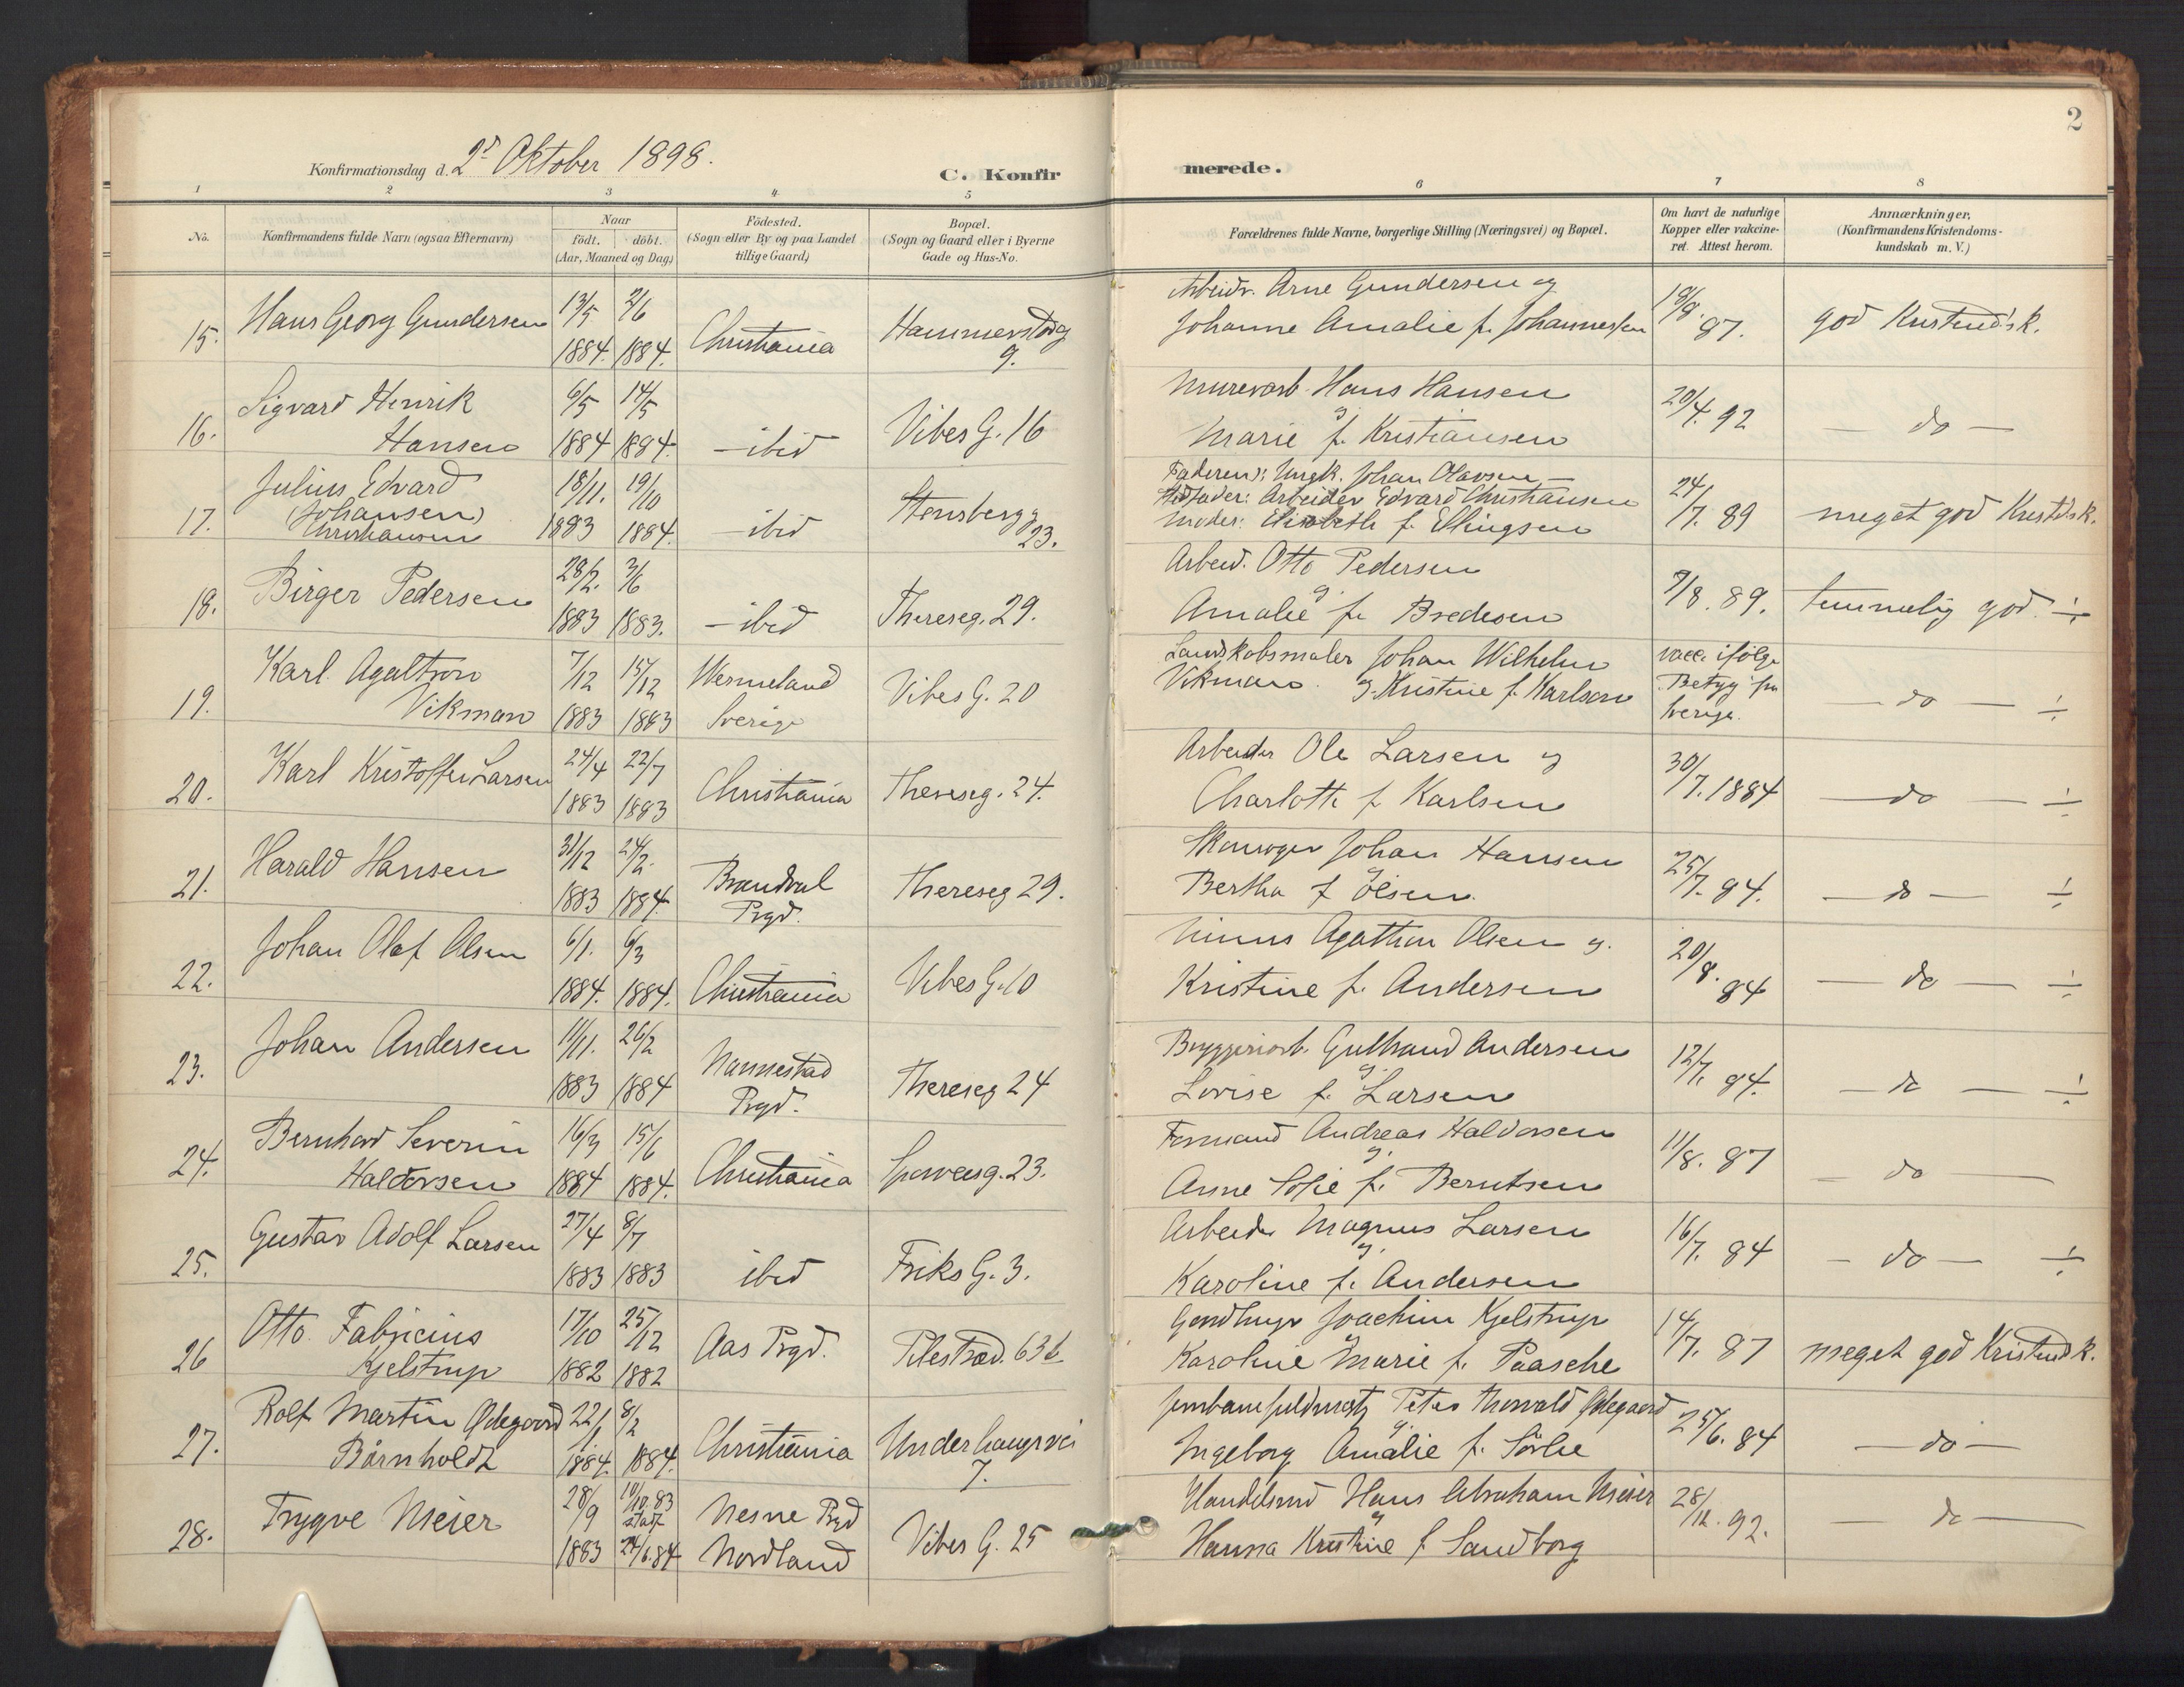 2
Konfirmationsdag d. 2d Oktober 1898.
C. Konfirmerede.
1 2 3 4 5 6 7 8
No.
Konfirmandens fulde Navn (ogsaa Efternavn)
Naar
födt. döbt.
(Aar, Maaned og Dag)
Födested.
(Sogn eller By og paa Landet
tillige Gaard)
Bopæl.
(Sogn og Gaard eller i Byerne
Gade og Hus-No.
Forældrenes fulde Navne, borgerlige Stilling (Næringsvei) og Bopæl.
Om havt de naturlige
Kopper eller vakcine-
ret. Attest herom.
Anmærkninger.
(Konfirmandens Kristendoms-
kundskab m. V.)
15. Hans Georg Gundersen 13/5 1884. 2/6 1884. Christiania Hammerstbg 9.
Arbeidr. Arne Gundersen og
Johanne Amalie f. Johannessen
18/8. 87. god Kristend'sk.
16. Sigvard Henrik
Hansen 6/5 1884 14/5 1884. - ibid Vibes G. 16
Murerarb. Hans Hansen
g
Marie f. Kristiansen
20/4. 92 - do -
17. Julius Edvard
(Johansen)
Christiansen 18/11. 1883 19/10 1884. - ibid Stensbergg 23.
Faderen: Ungk. Johan Olavsen -
Stedfader: Arbeider Edvard Christiansen
Moder: Elisabeth f. Ellingsen
24/7. 89 meget god Kristdsk.
18. Birger Pedersen 28/2. 1883 3/6 1883. - ibid Thereseg. 29.
Arbeid. Otto Pedersen
g.
Amalie f. Bredesen
7/8. 89. temmelig god. ÷
19. Karl Agaltron
Vikman 7/12 1883 15/12 1883 Wermeland
Sverige Vibes G. 20
Landskabsmaler Johan Wilhelm
Vikman g. Kristine f. Karlson
vacc. ifølge
Betyg fra
Sverige. - do - ÷
20. Karl Kristoffer Larsen 24/4 1883 22/7 1883 Christiania Thereseg. 24.
Arbeider Ole Larsen g
Charlotte f Karlsen
30/7. 1884 - do - ÷
21. Harald Hansen 31/12 1883 24/2. 1884. Brandval
Prgd. Thereseg 29.
Johan Hansen
g
Bertha f Olsen
25/7. 84. - do - ÷
22. Johan Olaf Olsen 6/1. 1884. 6/3 1884. Christiania Vibes G. 10
Agathon Olsen g.
Kristine f. Andersen
20/8. 84 - do - ÷
23. Johan Andersen 11/11. 1883 26/2 1884 Nannestad
Prgd. Thereseg 24
Bryggeriarb. Gulbrand Andersen
g.
Lovise f. Larsen
12/7. 84. - do - ÷
24. Bernhard Severin
Haldorsen 16/3 1884 15/6 1884. Christiania Sporveisg. 23.
Formand Andreas Haldorsen
g.
Anne Sofie f. Berntsen
11/8. 87 - do -
25. Gustav Adolf Larsen 27/4 1883 8/7 1883 ibid Friks G. 3.
Arbeider Magnus Larsen
g.
Karoline f. Andersen
16/7. 84 - do - ÷
26 Otto Fabricius
Kjelstrup 17/10 1882 25/12 1882 Aas Prgd. Pilestræd. 63 b
Joachim Kjelstrup
g
Karoline Marie f. Paasche
14/7. 87 meget god Kristendk.
27. Rolf Martin Ødegaard
Bårnholdt 22/1 1884. 8/2 1884. Christiania Underhaugsvei 7.
Jernbanefuldmæg Peter Thorvald Ødegaard
g.
Ingeborg Amalie f. Sörlie
25/6. 84 - do -
28. Trygve Meier 28/9 1883 10/10. 83
stadf
24/6. 84 Nesne Prgd
Nordland Vibes G. 25
Handelsmd Hans Abraham Meier
g
Hanna Kristine f Sandborg
28/12. 92. - do -